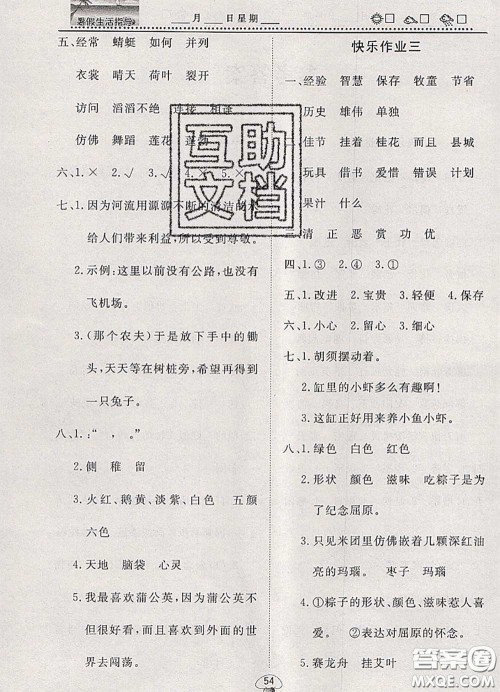 暑假生活指导
月 日星期
五、经常 蜻蜓 如何 并列
衣裳 晴天 荷叶 裂开
访问 滔滔不绝 连接 相逢
仿佛 舞蹈 莲花 蓬勃
六、1.× 2.√ 3.√ 4.× 5.×
七、1.因为河流用源源不断的清洁的水
给人们带来利益,所以受到尊敬。
2.示例:这里以前没有公路,也没有
飞机场。
3.(那个农夫)于是放下手中的锄
头,天天等在树桩旁,希望再得到
一只兔子。
八、1.:“ , 。”
2.侧 稚 留
3.火红、鹅黄、淡紫、白色 五颜
六色
4.天地 脑袋 心灵
5.我最喜欢蒲公英,因为蒲公英不
但很好看,而且对外面的世界
去闯荡。
互助
文档
快乐作业三
一、经验 智慧 保存 牧童 节省
历史 雄伟 单独
二、佳节 挂着 桂花 而且 县城
玩具 借书 爱惜 错误 计划
果汁 什么
三、清 正 恶 赏 功 优
四、1.① 2.① 3.②
五、1.改进 2.宝贵 3.轻便 4.保存
六、1.小心 2.留心 3.细心
七、1.胡须摆动着。
2.缸里的小虾多么有趣啊!
3.这缸正好用来养小鱼小虾。
八、1.绿色 白色 红色
2.形状 颜色 滋味 吃粽子是为
了纪念屈原。
3.只见米团里仿佛嵌着几颗深红油
亮的玛瑙。 枣子 玛瑙
4.①粽子的形状、颜色、滋味惹人喜
爱。 ②表达对屈原的怀念。
5.赛龙舟 挂艾叶
54
答案圈
MXQE.COM